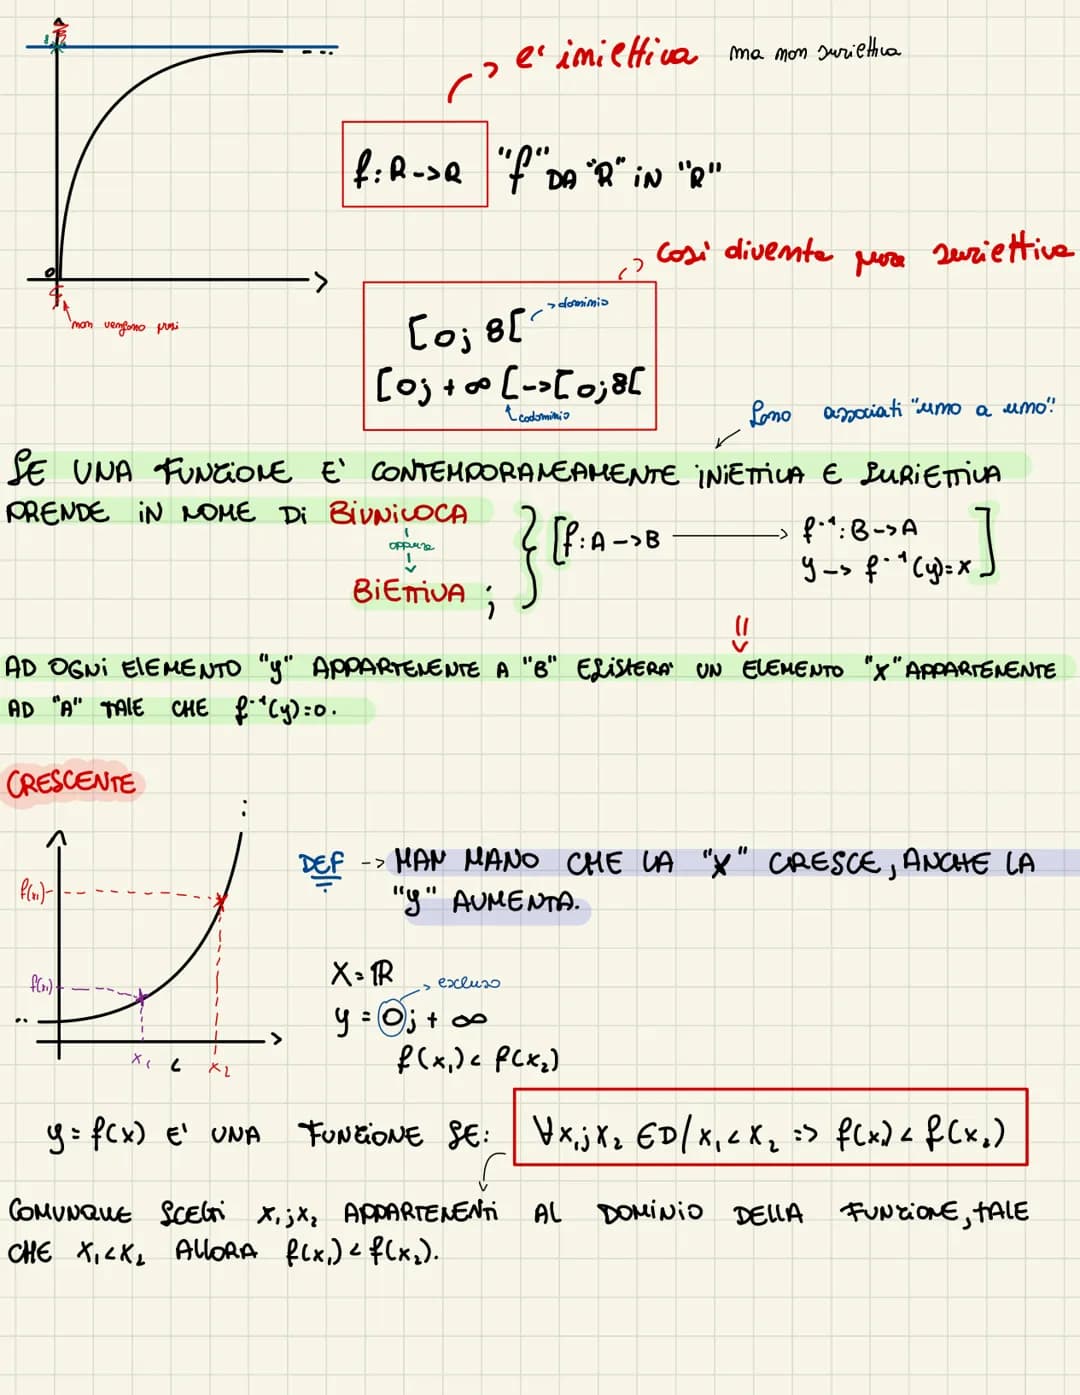 è iniettiva ma non suriettiva
f: R->R "f" DA "R" iN "R"
Così diventa pure suriettiva
0
non vengono presi
[0; 8[ -> dominio
[0; +∞ [->[0;8[
codominio
Sono associati "uno a uno".
SE UNA FUNZIONE E' CONTEMPORANEAMENTE iNiETTiVA E SURiETTiVA
PRENDE iN NOME Di BiUNiVOCA
oppure
BiETTiVA ;
[f: A ->B -> f⁻¹: B->A
y -> f⁻¹(y)=x ]
AD OGNi ElEMENTO "y" APPARTENENTE A "B" ESiSTERA' UN ELEMENTO "X" APPARTENENTE
AD "A" TALE CHE f⁻¹(y)=0.
CRESCENTE
DEF -> MAN MANO CHE LA "X" CRESCE, ANCHE LA
"y" AUMENTA.
f(x₁)
f(x₁)
x₁ < x₂
X = ℝ
-> escluso
y = 0; + ∞
f(x₁) < f(x₂)
y = f(x) E' UNA FUNZiONE SE: ∀x₁;x₂ ∈D/ x₁<x₂ => f(x₁) < f(x₂)
COMUNQUE SCELTi x₁;x₂ APPARTENENTi AL DOMiNiO DELLA FUNZiONE, TALE
CHE X₁<X₂ ALLORA f(x₁) < f(x₂).